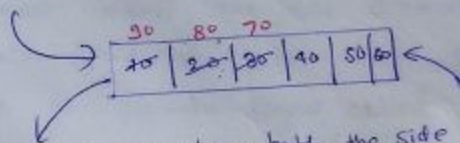 90 80 70
10 20 30 40 50 60
the side